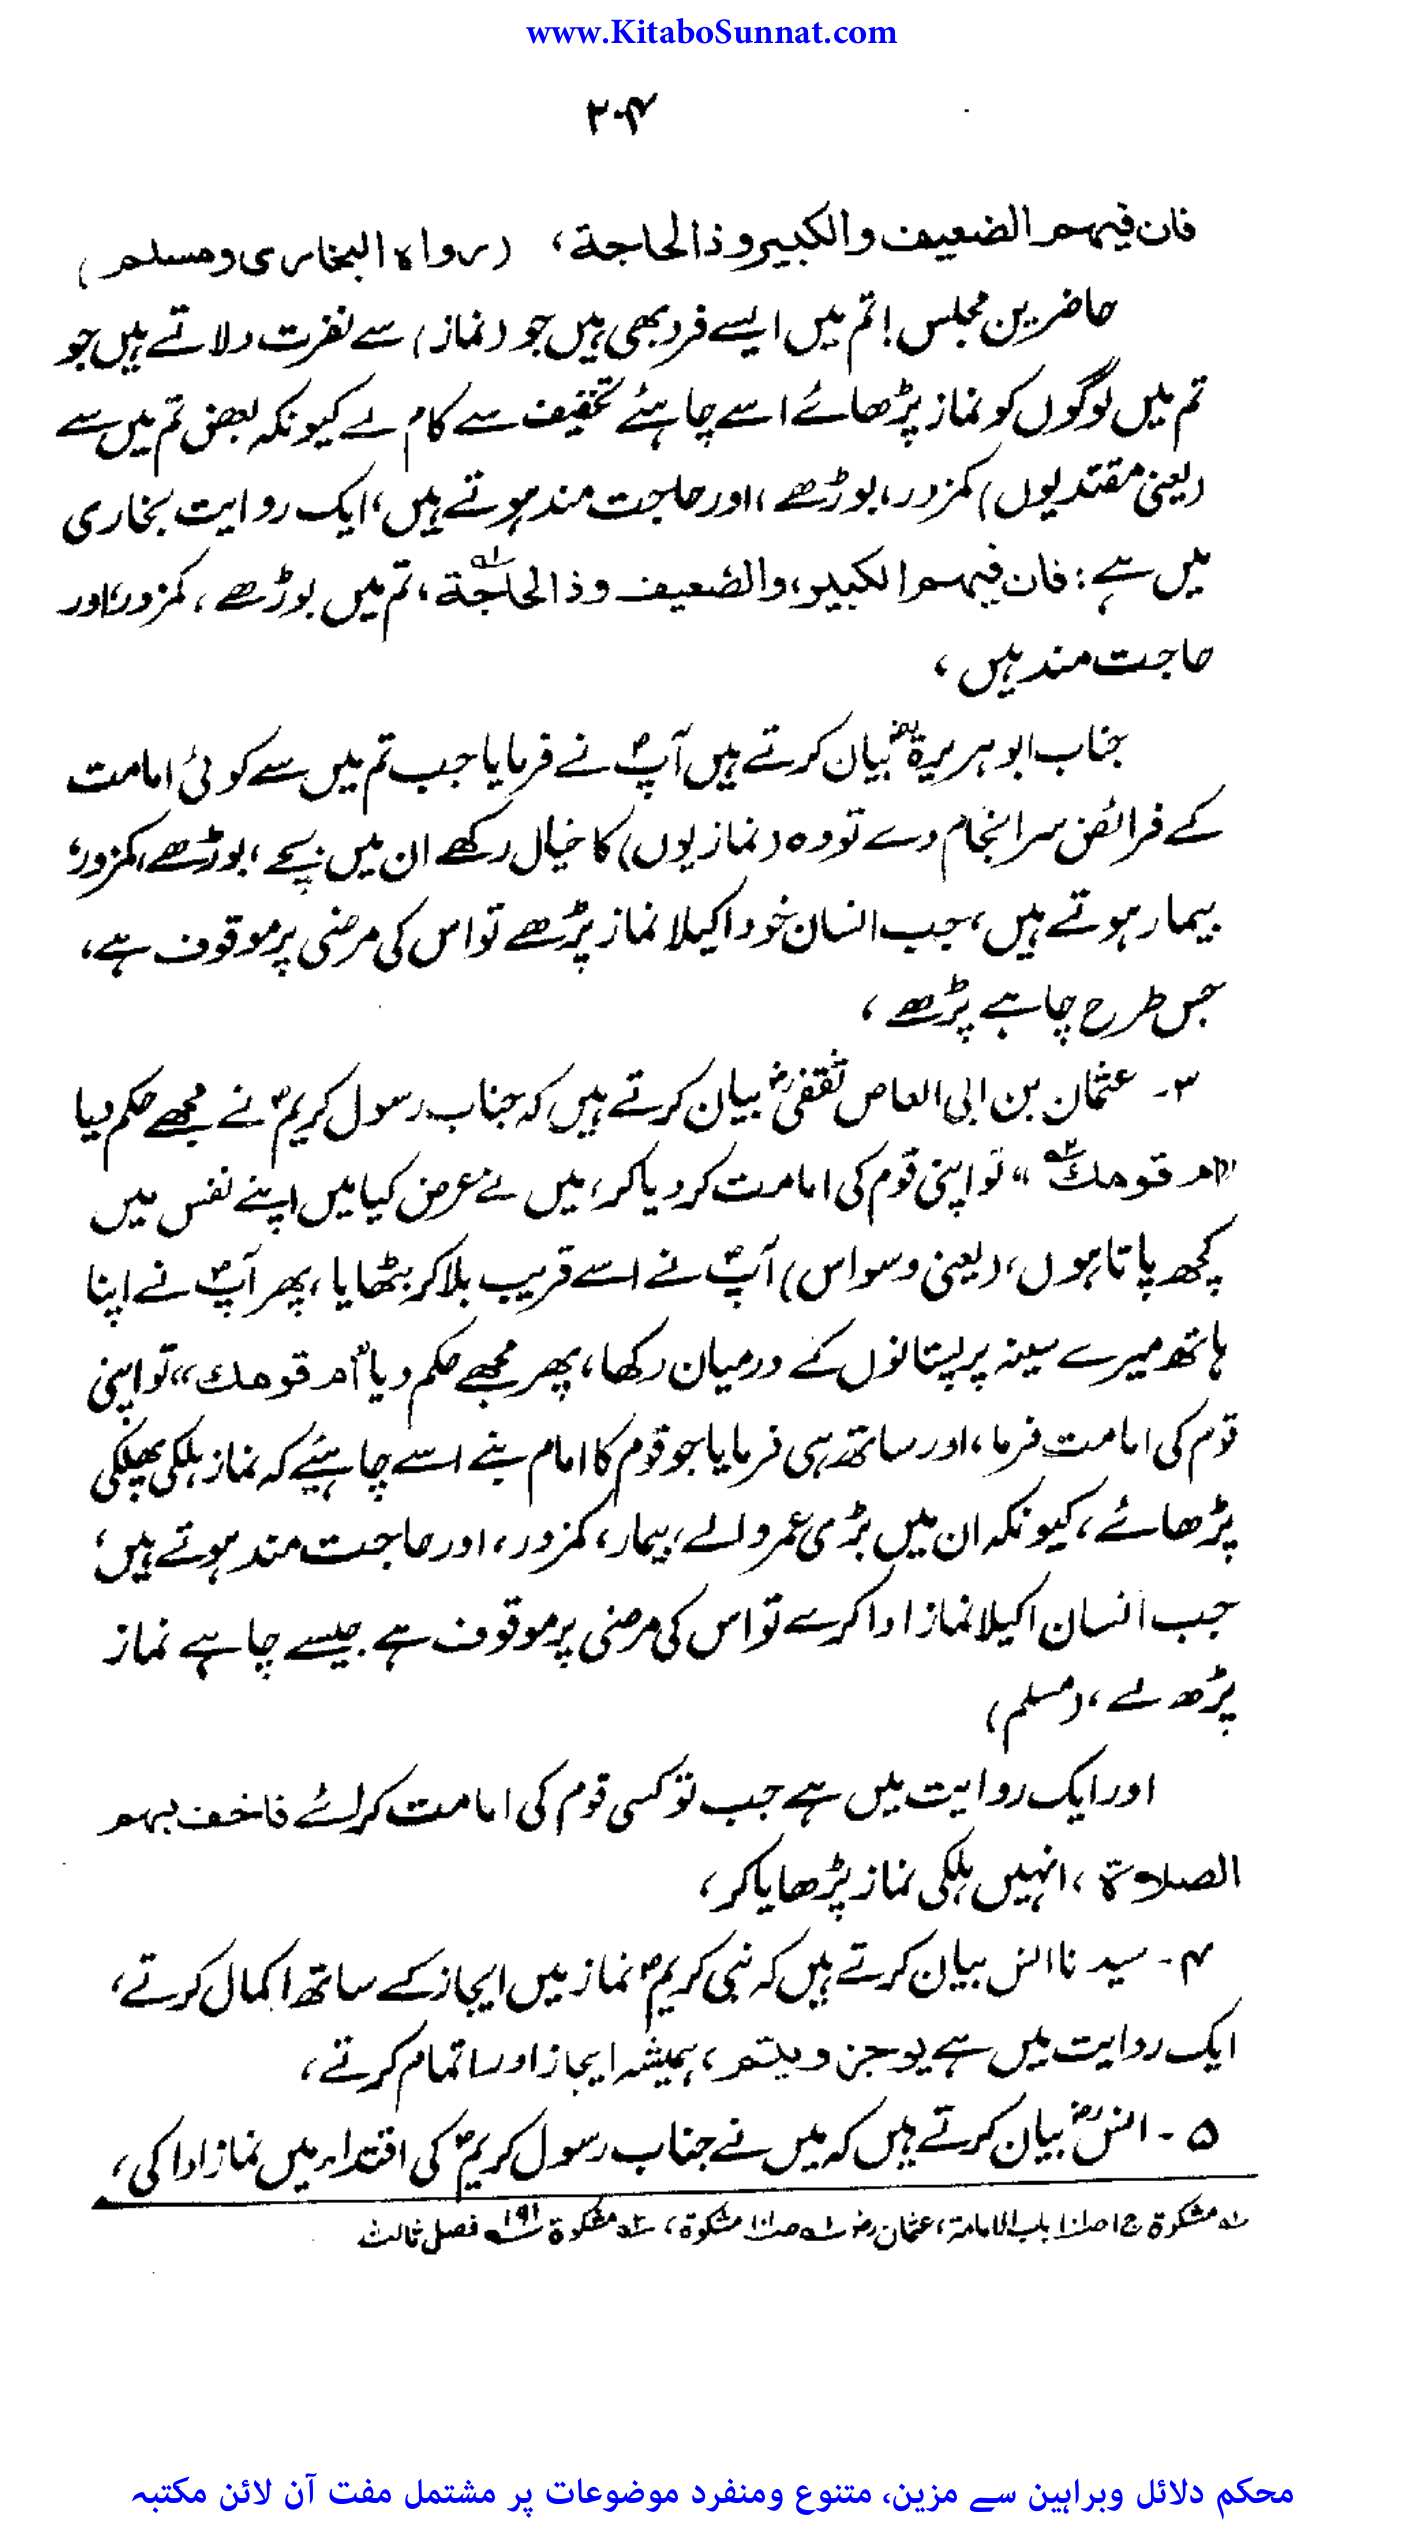 www.KitaboSunnat.com
۲۰۴
فان فیہم الضعیف والکبیر وذالحاجة، (رواہ البخاری ومسلم)
حاضرین مجلس! تم میں ایسے فرد بھی ہیں جو (نماز) سے نفرت دلاتے ہیں جو
تم میں لوگوں کو نماز پڑھائے اسے چاہئے تخفیف سے کام لے کیونکہ بعض تم میں سے
(یعنی مقتدیوں) کمزور، بوڑھے، اور حاجت مند ہوتے ہیں، ایک روایت بخاری
میں ہے: فان فیہم الکبیر، والضعیف وذالحاجة، تم میں بوڑھے، کمزور، اور
حاجت مند ہیں،
جناب ابو ہریرة رض بیان کرتے ہیں آپؐ نے فرمایا جب تم میں سے کوئی امامت
کے فرائض سرانجام دے تو وہ (نمازیوں) کا خیال رکھے ان میں بچے، بوڑھے، کمزور،
بیمار ہوتے ہیں، جب انسان خود اکیلا نماز پڑھے تو اس کی مرضی پر موقوف ہے،
جس طرح چاہے پڑھے،
۳۔ عثمان بن ابی العاص ثقفیؓ بیان کرتے ہیں کہ جناب رسول کریمؐ نے مجھے حکم دیا
"ام قومك" تو اپنی قوم کی امامت کر دیا کر، میں نے عرض کیا میں اپنے نفس میں
کچھ پاتا ہوں، (یعنی وسواس) آپؐ نے اسے قریب بلا کر بٹھایا، پھر آپؐ نے اپنا
ہاتھ میرے سینہ پر پستانوں کے درمیان رکھا، پھر مجھے حکم دیا "ام قومك" تو اپنی
قوم کی امامت فرما، اور ساتھ ہی فرمایا جو قوم کا امام بنے اسے چاہیئے کہ نماز ہلکی پھلکی
پڑھائے، کیونکہ ان میں بڑی عمر والے، بیمار، کمزور، اور حاجت مند ہوتے ہیں،
جب انسان اکیلا نماز ادا کرے تو اس کی مرضی پر موقوف ہے جیسے چاہے نماز
پڑھ لے، (مسلم)
اور ایک روایت میں ہے جب تو کسی قوم کی امامت کرائے فاخف بہم
الصلاوة، انہیں ہلکی نماز پڑھایا کر،
۴۔ سیدنا انس بیان کرتے ہیں کہ نبی کریمؐ نماز میں ایجاز کے ساتھ اکمال کرتے،
ایک روایت میں ہے یوجز ویتم، ہمیشہ ایجاز اور اتمام کرتے،
۵۔ انسؓ بیان کرتے ہیں کہ میں نے جناب رسول کریمؐ کی اقتداء میں نماز ادا کی،
مشکوة ج۱ ص۱۰۱ باب الامامة، عثمان رض ص۱۰۱ مشکوة، ۲ مشکوة ۱۹۱ فصل ثالث
محکم دلائل وبراہین سے مزین، متنوع ومنفرد موضوعات پر مشتمل مفت آن لائن مکتبہ